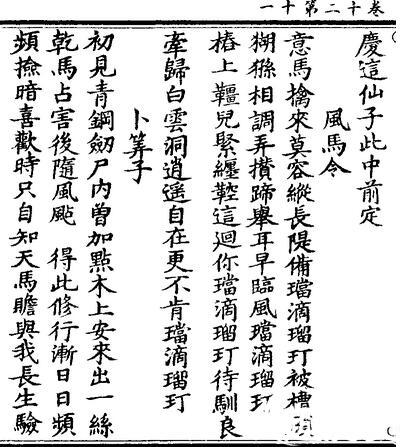 卷十二第十一
慶這仙子此中前定
風馬令
意馬擒來莫容縱長隄備璫滴瑠玎被槽
猢猻相調弄攢蹄舉耳早臨風璫滴瑠玎
樁上韁兒緊纏鞚這迴你璫滴瑠玎待馴良
牽歸白雲洞逍遥自在更不肯璫滴瑠玎
卜筭子
初見青鋼劒尸内曾加點木上安來出一絲
乾馬占害後隨風颩　得此修行漸日日頻
頻撿暗喜歡時只自知天馬瞻與我長生驗